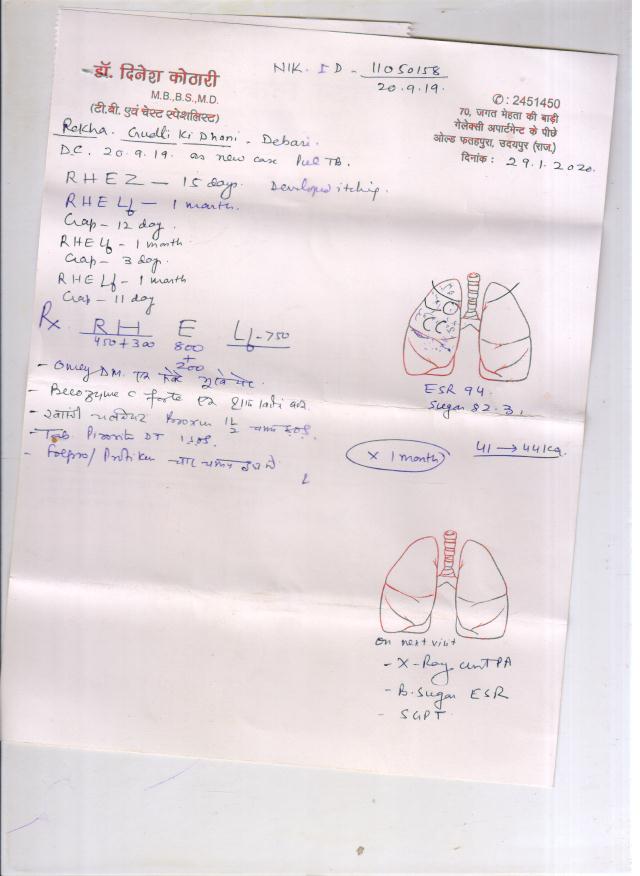 डॉ. दिनेश कोठारी
M.B.,B.S.,M.D.
(टी.बी. एवं चेस्ट स्पेशलिस्ट)
NIK. ID - 11050158
20.9.19.
✆: 2451450
70, जगत मेहता की बाड़ी
गेलेक्सी अपार्टमेन्ट के पीछे
ओल्ड फतहपुरा, उदयपुर (राज.)
दिनांक: 29.1.2020.
Rekha. Gudli Ki Dhani. Debari.
D.C. 20.9.19. as new case Pul TB.
RHEZ — 15 days. Developed itching.
RHE Lf — 1 month.
Gap - 12 day.
RHE Lf - 1 month.
Gap - 3 day.
RHE Lf - 1 month
Gap - 11 day
Rx RH E Lf - 750
450+300 800
+
200
- Omey DM. एक
- Becozyme C forte एक
- 
- Tab DT
- 
CC
ESR 94.
Sugar 82.3.
x 1 month
41 → 44 kg.
on next visit
- X-Ray chest PA
- B. Sugar ESR
- SGPT.